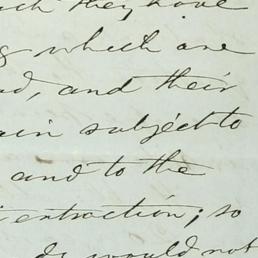 they have
which are
and their
subject to
and to the
extraction; so
would not